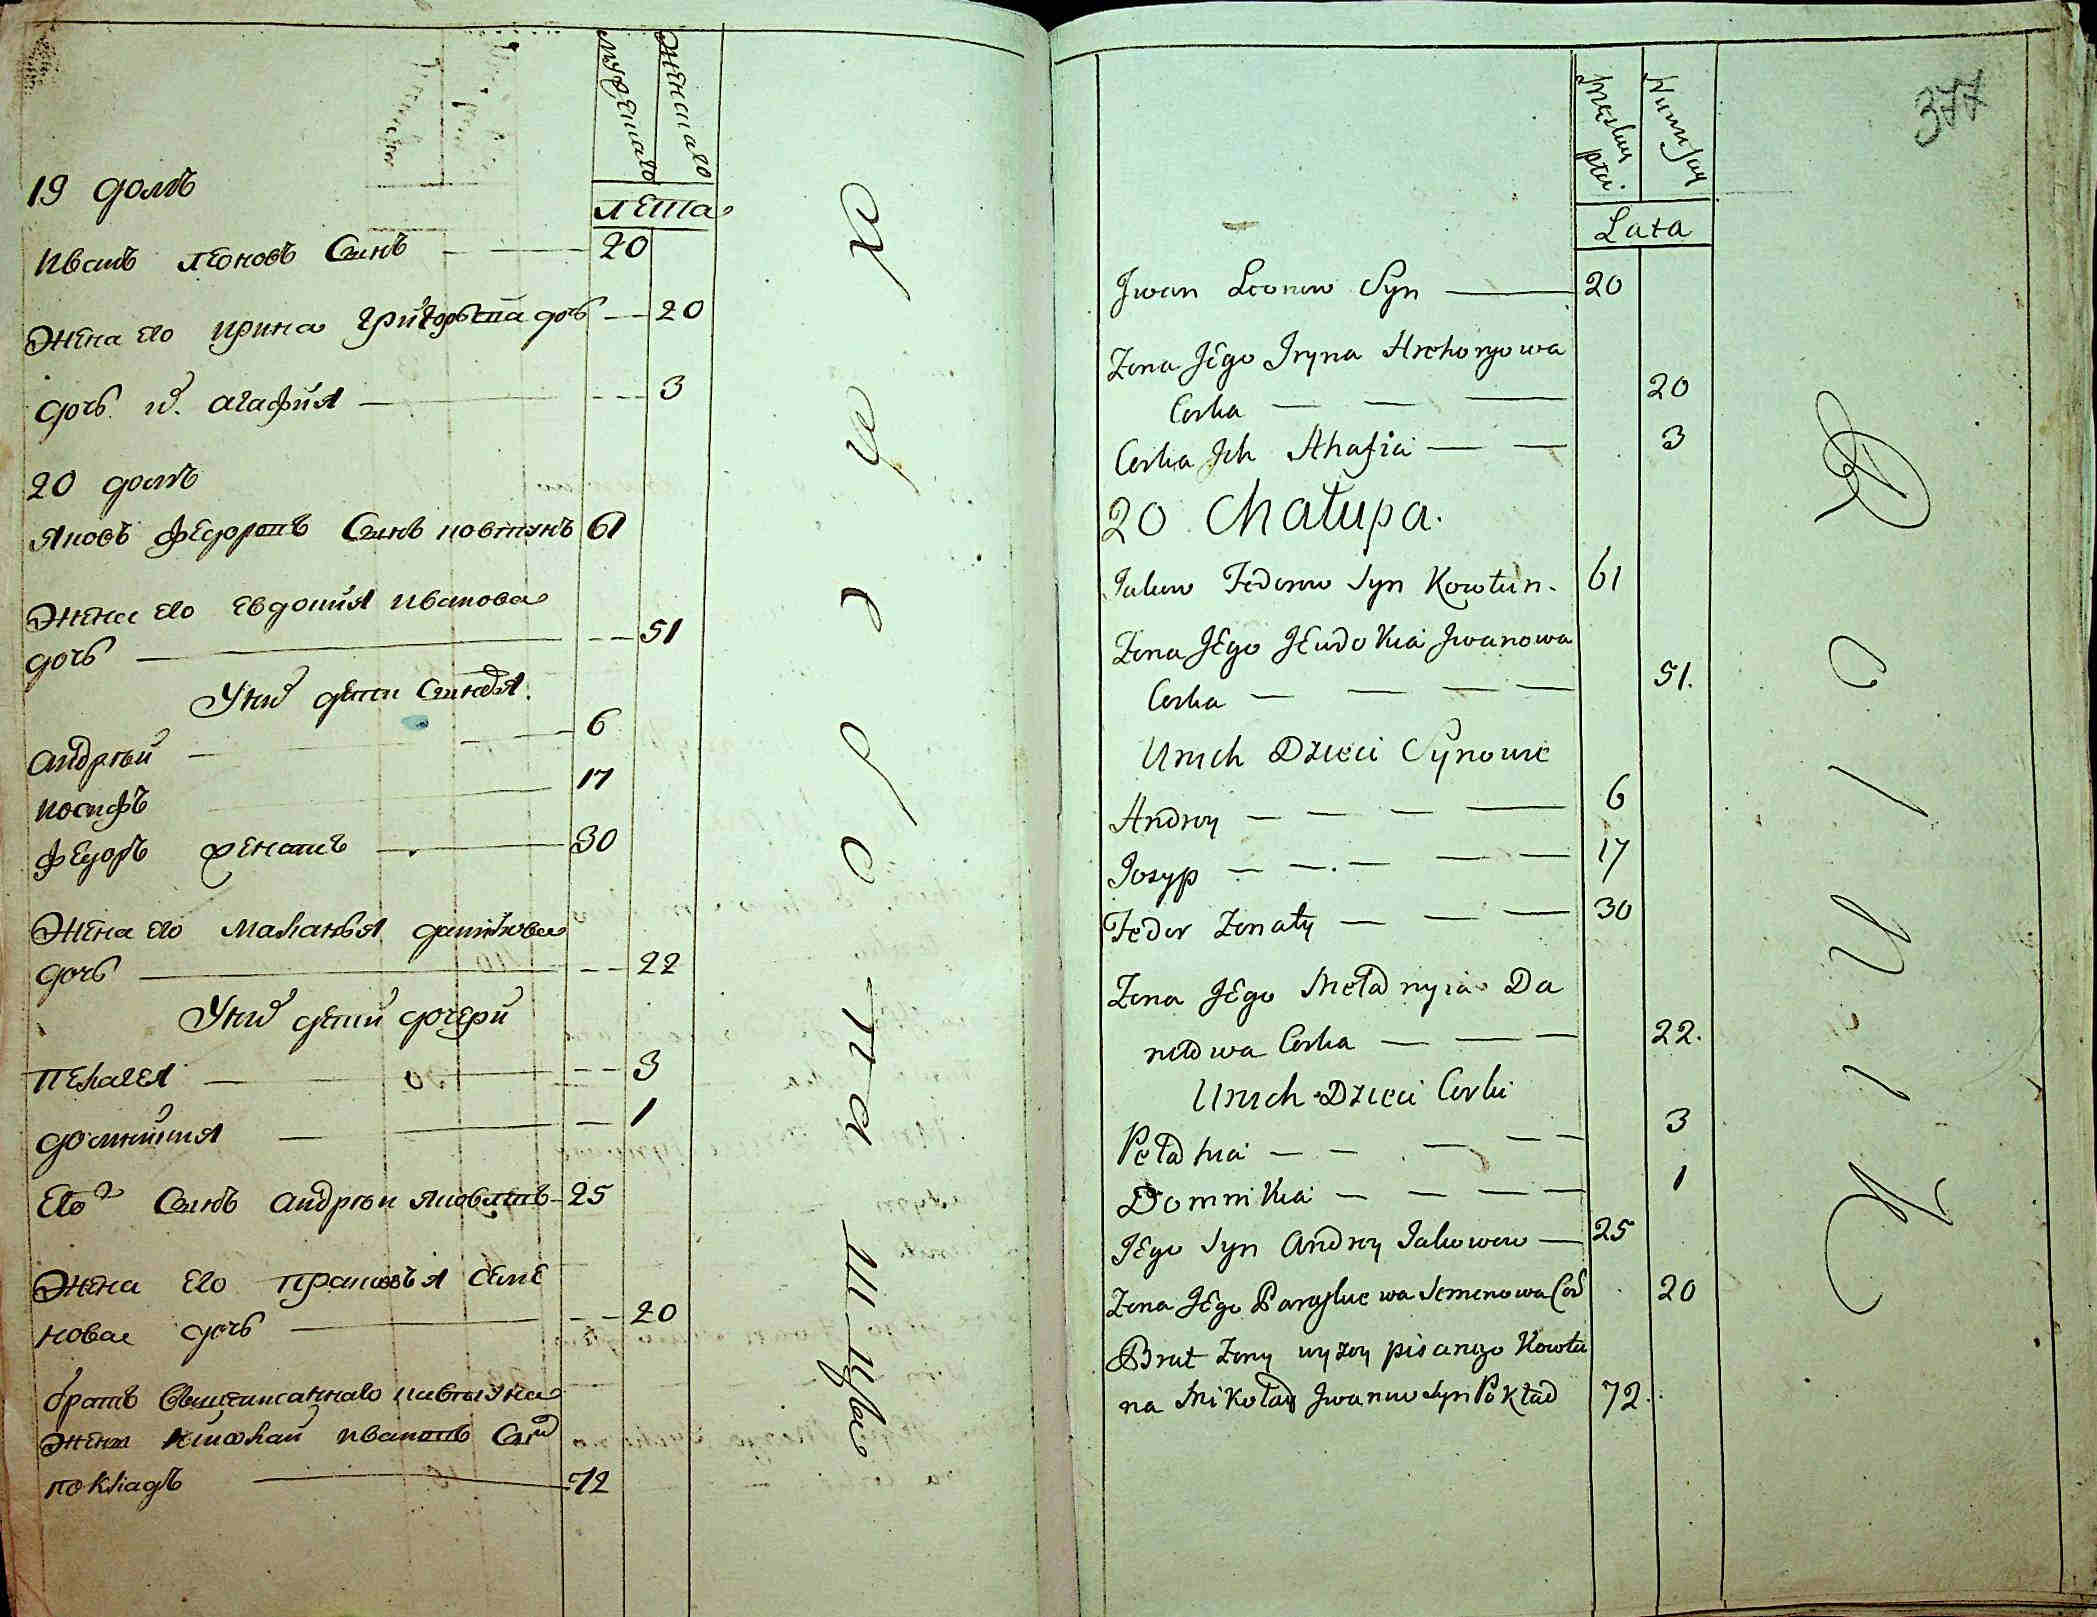 мужеска
женска
лета
19 домъ
Иванъ Леоновъ Сынъ 20
Жена его Ирина Григорьева дочь 20
дочь их Агафия 3
20 домъ
Яковъ Федоровъ Сынъ Ковтунъ 61
Жена его Евдокия Иванова
дочь 51
У них дети Сыновья.
Андрей 6
Иосифъ 17
Федоръ женатъ 30
Жена его Маланья Данилова
дочь 22
У них дети дочери
Пелагея 3
Домникия 1
Его Сынъ Андрей Яковлевъ 25
Жена его Прасковья Семе
нова дочь 20
братъ Вышеписаннаго Ковтуна
жены Николай Ивановъ Сынъ
Покладъ 72
377
Lata
Jwan Leonow Syn 20
Zona Jego Iryna Hrehoryowa
Corka 20
Corka Jch Ahafia 3
20 Chałupa.
Jakow Fedorow Syn Kowtun. 61
Zona Jego Jeudokia Jwanowa
Corka 51.
Unich Dzieci Synowie
Andrey 6
Josyp 17
Fedor Zonaty 30
Zona Jego Meładnyia Da
niłowa Corka 22.
Unich Dzieci Corki
Pełahia 3
Domnikia 1
Jego Syn Andrey Jakowow 25
Zona Jego Paraskiewa Semenowa Cor 20
Brat Zony wyzey pisanego Kowtu
na Mikołay Jwanow Syn Pokład 72.